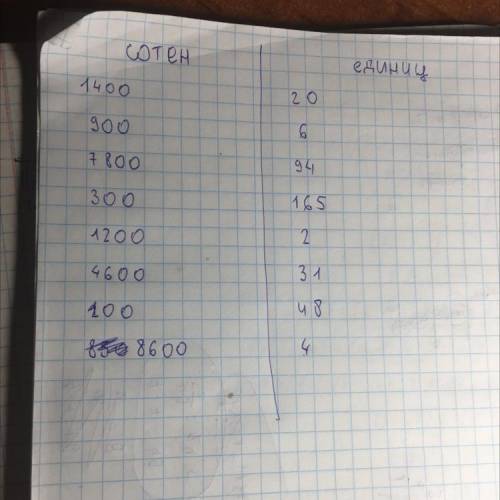 сотен единиц
1400 20
900 6
7800 94
300 165
1200 2
4600 31
100 48
8600 4